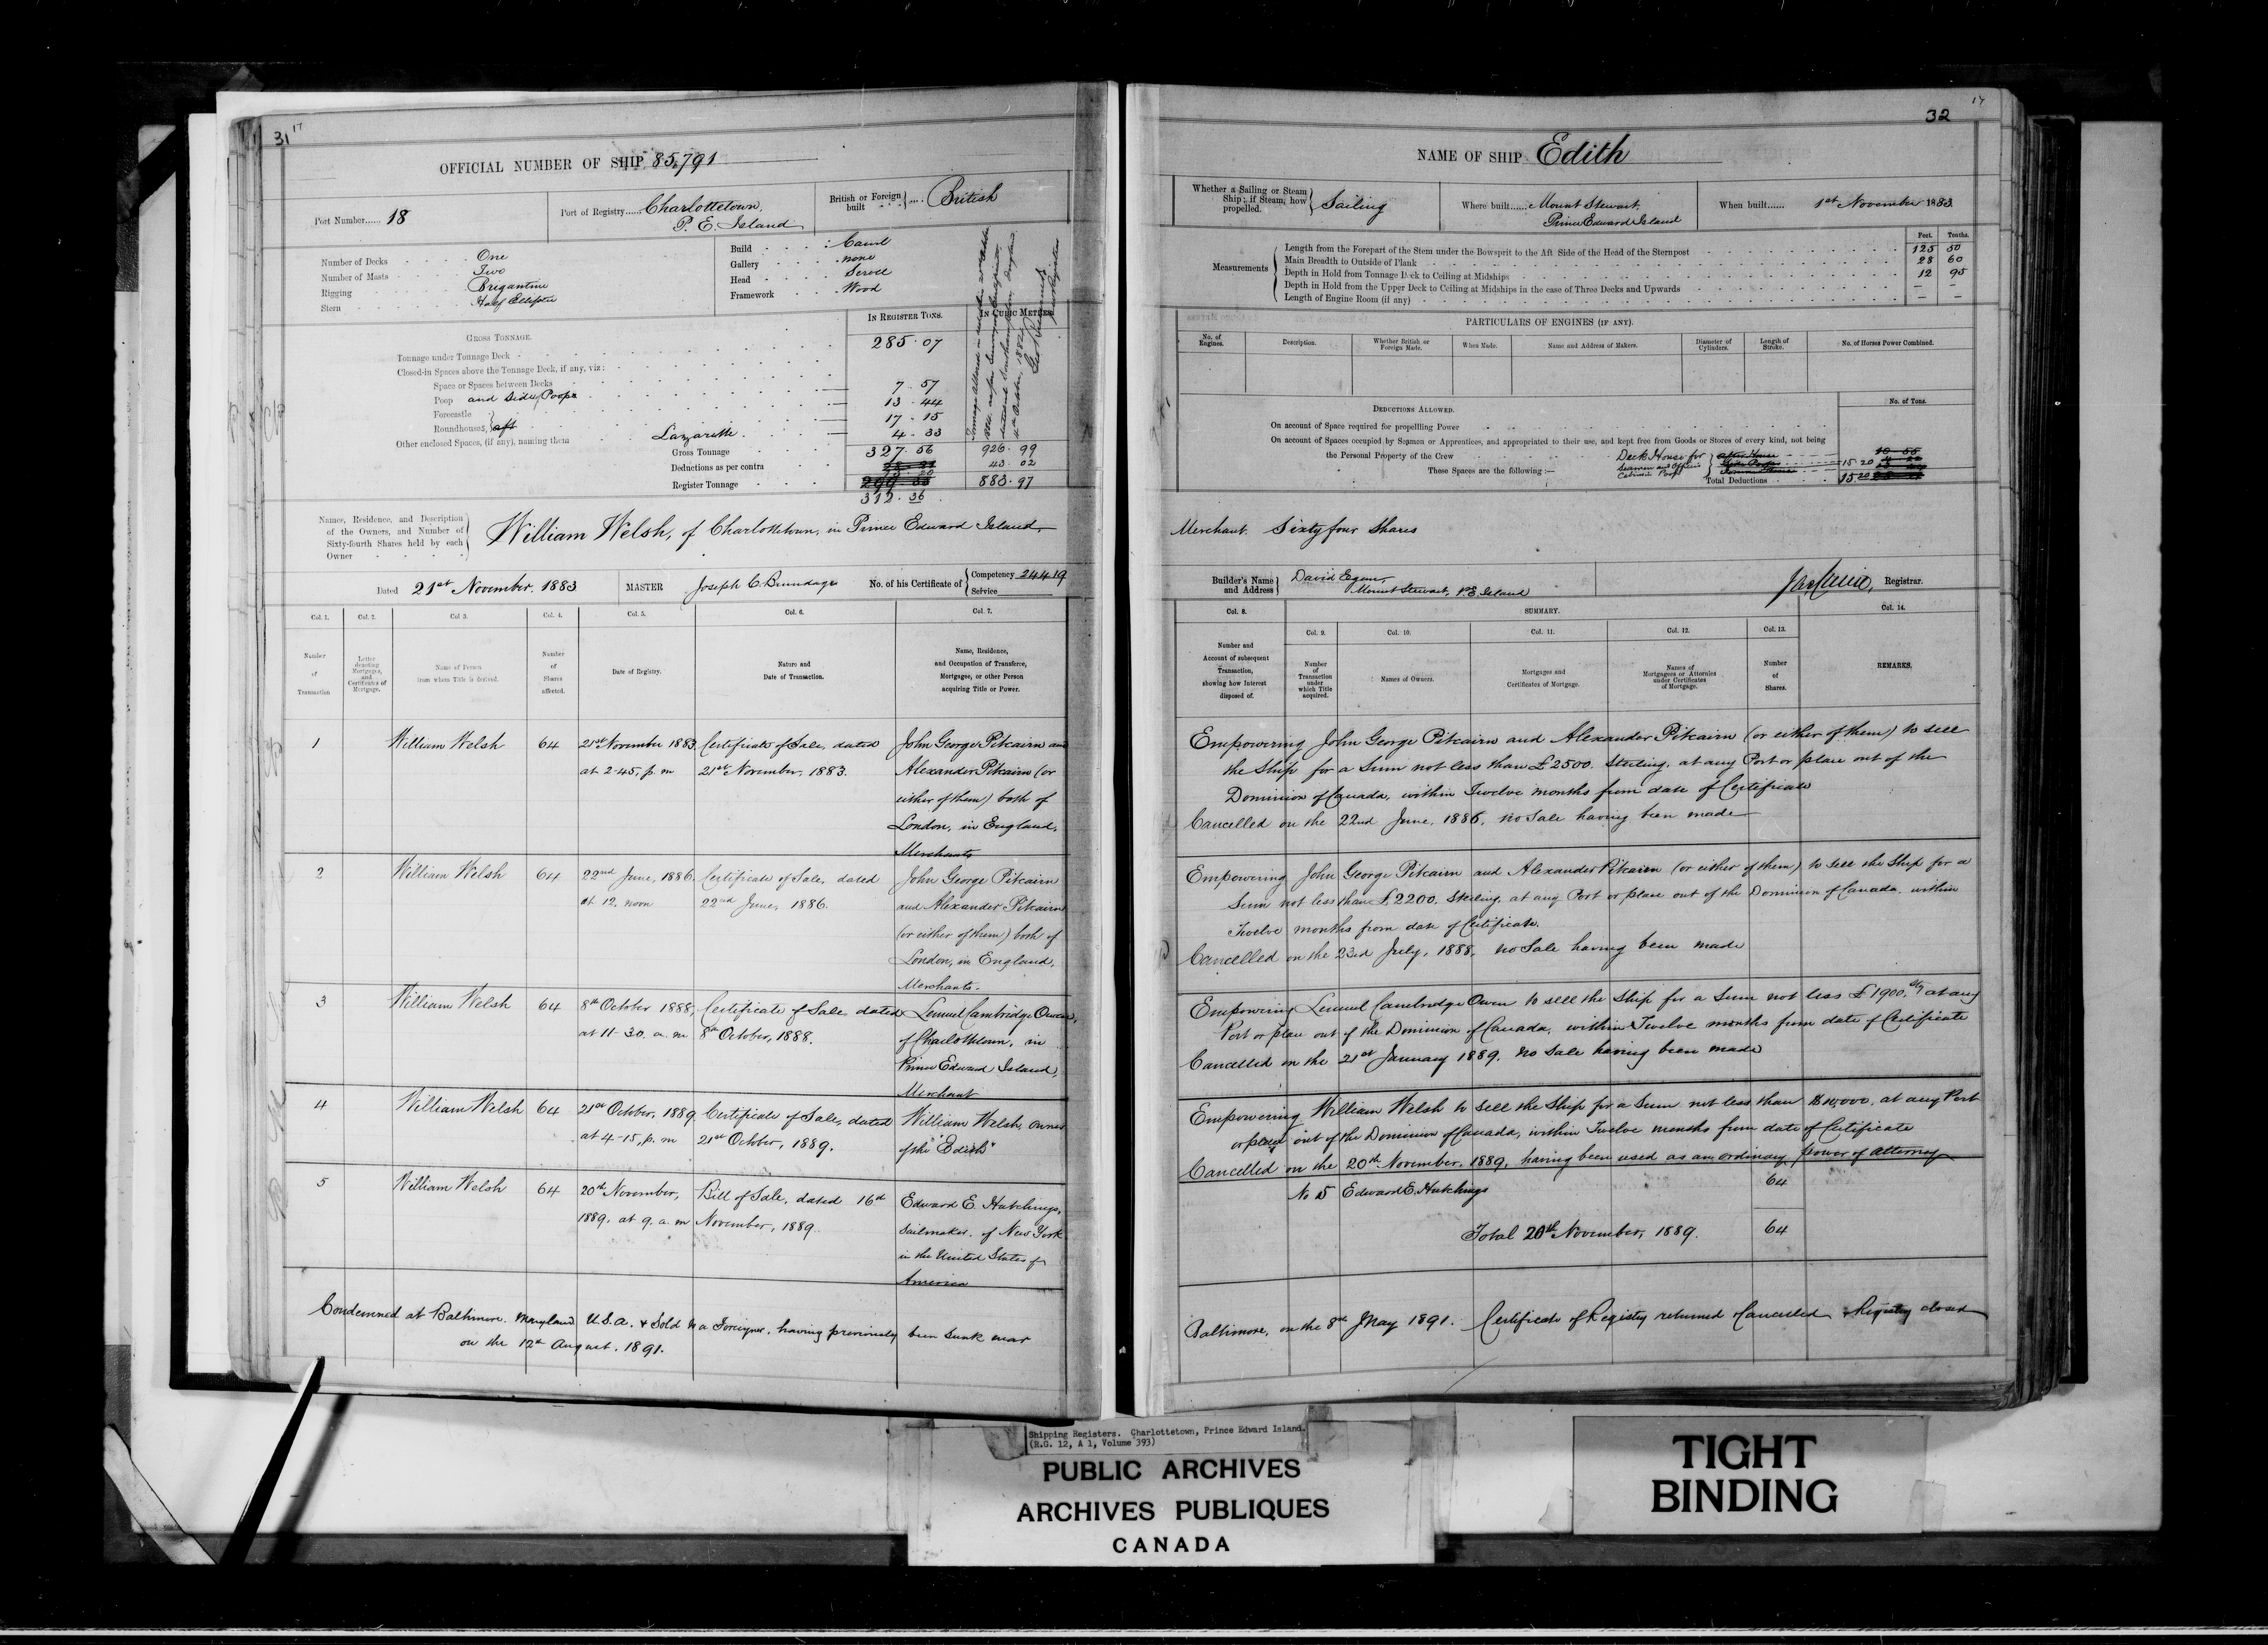 31
17
OFFICIAL NUMBER OF SHIP 85,791
Port Number...... 18
Port of Registry...... Charlottetown,
P. E. Island
British or Foreign built .... British
Number of Decks One
Number of Masts Two
Rigging Brigantine
Stern Half Elliptic
Build Carvel
Gallery none
Head Scroll
Framework Wood
GROSS TONNAGE.
IN REGISTER TONS.
IN CUBIC METRES
Tonnage under Tonnage Deck 285.07
Closed-in Spaces above the Tonnage Deck, if any, viz:
Space or Spaces between Decks 7.57
Poop and Poop 13.44
Forecastle 17.15
Roundhouses, aft
Other enclosed Spaces, (if any), naming them Lazarette 4.33
Gross Tonnage 327.56 926.99
Deductions as per contra 15.20 43.02
Register Tonnage 883.97
312.36
Names, Residence, and Description
of the Owners, and Number of
Sixty-fourth Shares held by each
Owner
William Welsh, of Charlottetown, in Prince Edward Island
Dated 21st November, 1883
MASTER Joseph C. Brundage
No. of his Certificate of Competency 24419
Service
Col. 1. Col. 2. Col. 3. Col. 4. Col. 5. Col. 6. Col. 7.
Number of Transaction
Letter denoting Mortgages, and Certificates of Mortgage.
Name of Person from whom Title is derived.
Number of Shares affected.
Date of Registry.
Nature and Date of Transaction.
Name, Residence, and Occupation of Transferee, Mortgagee, or other Person acquiring Title or Power.
1 William Welsh 64 21st November 1883 Certificate of Sale, dated John George Pitcairn and
at 2-45, p. m 21st November, 1883. Alexander Pitcairn (or
either of them) both of
London, in England,
Merchants
2 William Welsh 64 22nd June, 1886. Certificate of Sale, dated John George Pitcairn
at 12. noon 22nd June, 1886. and Alexander Pitcairn
(or either of them) both of
London, in England,
Merchants.
3 William Welsh 64 8th October 1888, Certificate of Sale dated Lemuel Cambridge Owen,
at 11-30. a. m 8th October, 1888. of Charlottetown, in
Prince Edward Island,
Merchant
4 William Welsh 64 21st October, 1889, Certificate of Sale, dated William Welsh, owner
at 4-15, p. m 21st October, 1889. of the "Edith"
5 William Welsh 64 20th November, Bill of Sale, dated 16th Edward E. Hutchings,
1889. at 9. a. m November, 1889. Sailmaker, of New York
in the United States of
America
Condemned at Baltimore, Maryland U.S.A. & Sold to a Foreigner, having previously been sunk near
on the 12th August. 1891.
32
17
NAME OF SHIP Edith
Whether a Sailing or Steam Ship; if Steam, how propelled. Sailing
Where built...... Mount Stewart,
Prince Edward Island
When built...... 1st November 1883
Measurements
Feet. Tenths.
Length from the Forepart of the Stem under the Bowsprit to the Aft Side of the Head of the Sternpost 125 50
Main Breadth to Outside of Plank 28 60
Depth in Hold from Tonnage Deck to Ceiling at Midships 12 95
Depth in Hold from the Upper Deck to Ceiling at Midships in the case of Three Decks and Upwards —
Length of Engine Room (if any) —
PARTICULARS OF ENGINES (IF ANY).
No. of Engines. Description. Whether British or Foreign Made. When Made. Name and Address of Makers. Diameter of Cylinders. Length of Stroke. No. of Horses Power Combined.
DEDUCTIONS ALLOWED.
No. of Tons.
On account of Space required for propelling Power
On account of Spaces occupied by Seamen or Apprentices, and appropriated to their use, and kept free from Goods or Stores of every kind, not being
the Personal Property of the Crew
These Spaces are the following:—
Deck House for
Seamen
15.20
Total Deductions 15.20
Merchant. Sixty four Shares
Builder's Name and Address David Egan,
Mount Stewart, P.E. Island
Registrar.
Col. 8. SUMMARY. Col. 14.
Col. 9. Col. 10. Col. 11. Col. 12. Col. 13.
Number and Account of subsequent Transaction, showing how Interest disposed of.
Number of Transaction under which Title acquired.
Names of Owners.
Mortgages and Certificates of Mortgage.
Names of Mortgagees or Attornies under Certificates of Mortgage.
Number of Shares.
REMARKS.
Empowering John George Pitcairn and Alexander Pitcairn (or either of them) to sell
the Ship for a Sum not less than £2500. Sterling, at any Port or place out of the
Dominion of Canada, within Twelve months from date of Certificate
Cancelled on the 22nd June, 1886, no Sale having been made
Empowering John George Pitcairn and Alexander Pitcairn (or either of them) to sell the Ship for a
Sum not less than £2200. Sterling, at any Port or place out of the Dominion of Canada, within
Twelve months from date of Certificate.
Cancelled on the 23rd July, 1888, no Sale having been made
Empowering Lemuel Cambridge Owen to sell the Ship for a Sum not less £1900. stg at any
Port or place out of the Dominion of Canada, within Twelve months from date of Certificate
Cancelled on the 21st January 1889, no Sale having been made
Empowering William Welsh to sell the Ship for a Sum not less than $10,000. at any Port
or place out of the Dominion of Canada, within Twelve months from date of Certificate
Cancelled on the 20th November, 1889, having been used as an ordinary power of attorney
No 5 Edward E. Hutchings 64
Total 20th November, 1889. 64
Baltimore, on the 8th May 1891. Certificate of Registry returned Cancelled & Registry closed
Shipping Registers. Charlottetown, Prince Edward Island.
(R.G. 12, A 1, Volume 393)
PUBLIC ARCHIVES
ARCHIVES PUBLIQUES
CANADA
TIGHT
BINDING